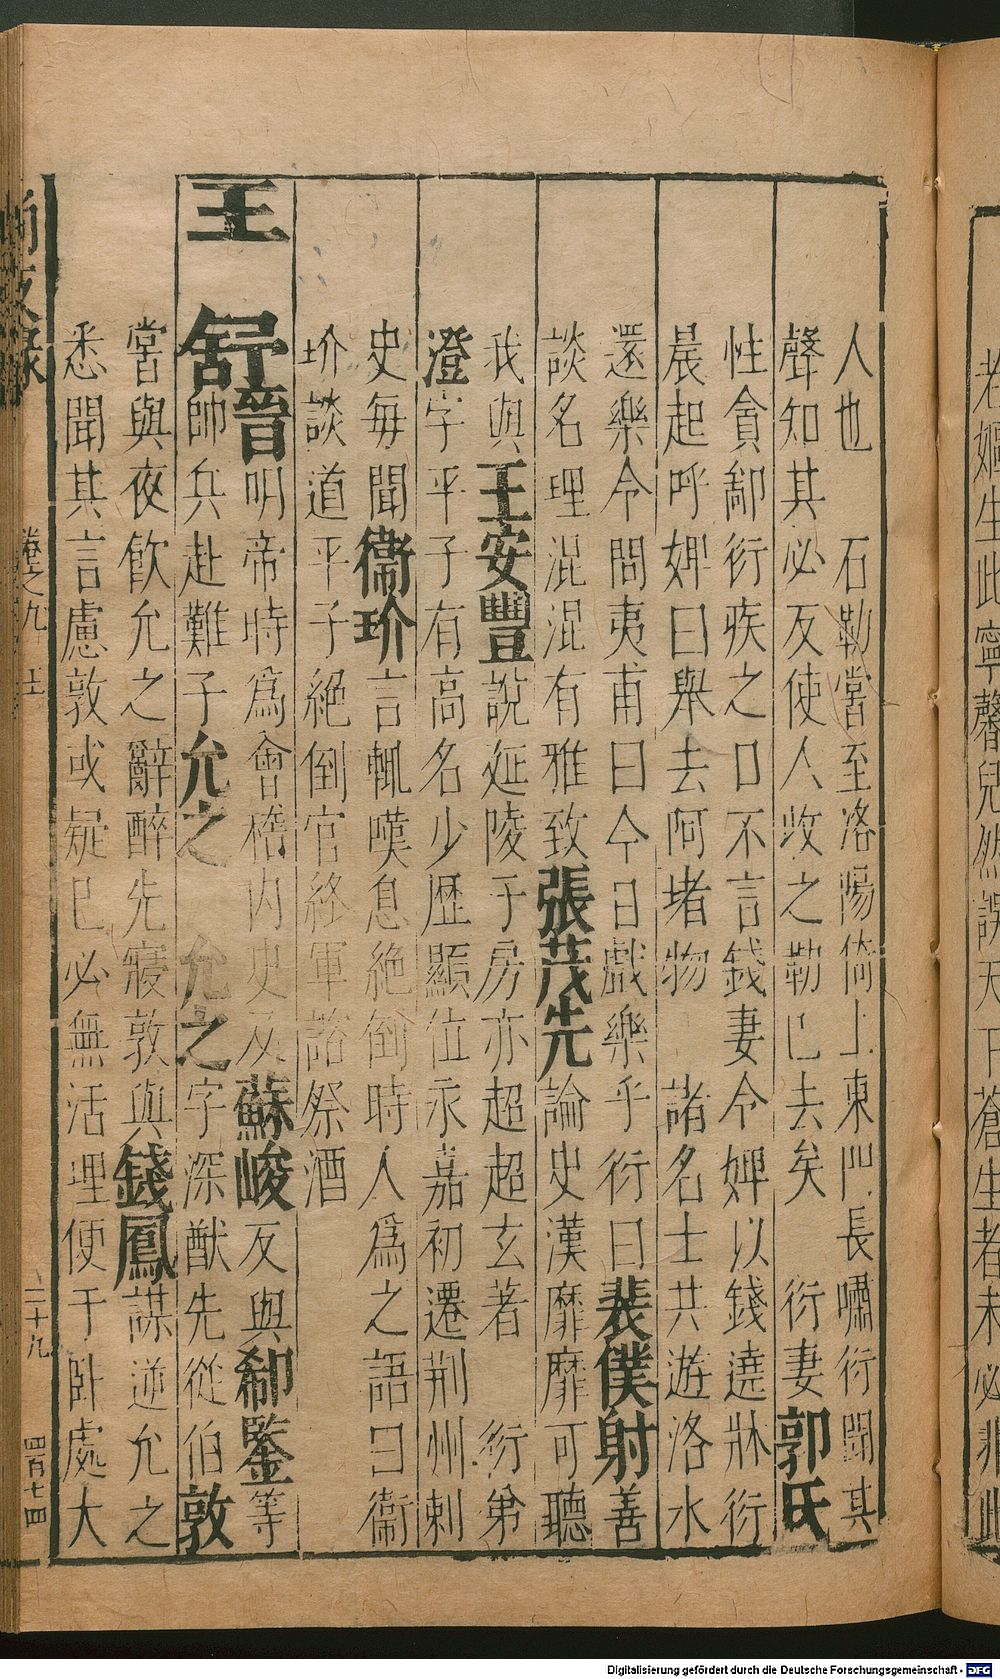 人也 石勒嘗至洛陽倚上東門長嘯衍聞其
聲知其必反使人收之勒已去矣 衍妻郭氏
性貪鄙衍疾之口不言錢妻令婢以錢遶牀衍
晨起呼婢曰舉去阿堵物 諸名士共遊洛水
還樂令問夷甫曰今日戲樂乎衍曰裴僕射善
談名理混混有雅致張茂先論史漢靡靡可聽
我與王安豐說延陵子房亦超超玄著 衍弟
澄字平子有高名少歷顯位永嘉初遷荆州刺
史每聞衞玠言輒嘆息絶倒時人爲之語曰衞
玠談道平子絶倒官終軍諮祭酒
王舒晉明帝時爲會稽內史及蘇峻反與郗鑒等
帥兵赴難子允之 允之字深猷先從伯敦
嘗與夜飲允之辭醉先寢敦與錢鳳謀逆允之
悉聞其言慮敦或疑已必無活理便于卧處大
尚友錄 卷之九 王 二十九 四百七十四
老嫗生此寧馨兒然誤天下蒼生者未必非此
Digitalisierung gefördert durch die Deutsche Forschungsgemeinschaft - DFG